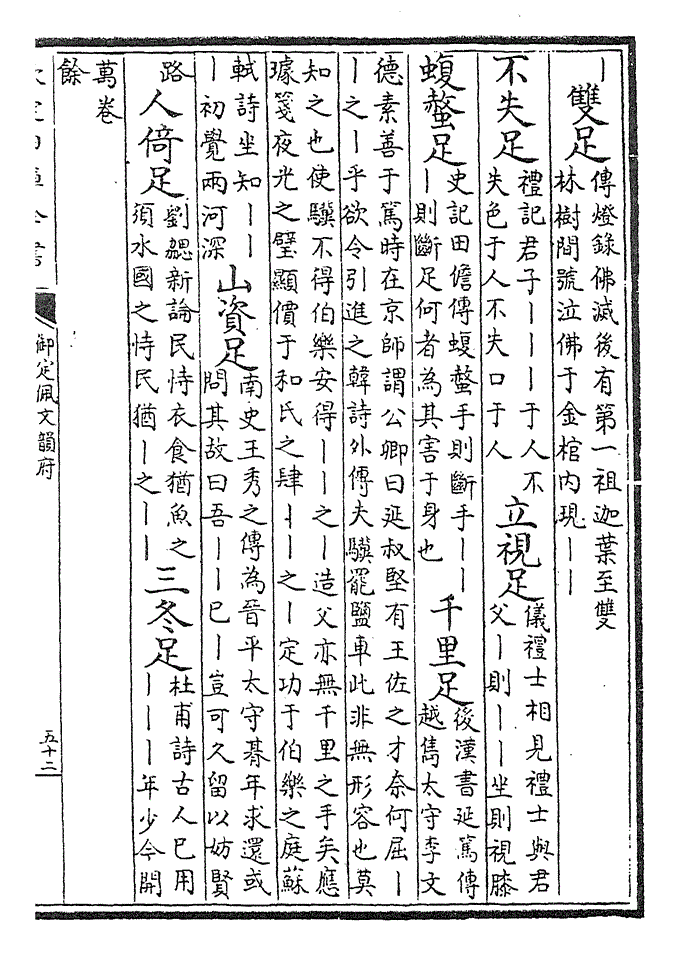 丨雙足
傳燈錄佛滅後有第一祖迦葉至雙
林樹間號泣佛于金棺内現丨丨
不失足
禮記君子丨丨丨于人不
失色于人不失口于人
立視足
儀禮士相見禮士與君
父丨則丨丨坐則視膝
蝮螫足
史記田儋傳蝮螫手則斷手丨丨
丨則斷足何者為其害于身也
千里足
後漢書延篤傳
越雋太守李文
德素善于篤時在京師謂公卿曰延叔堅有王佐之才奈何屈丨
丨之丨乎欲令引進之韓詩外傳夫驥罷鹽車此非無形容也莫
知之也使驥不得伯樂安得丨丨之丨造父亦無千里之手矣應
璩箋夜光之璧顯價于和氏之肆丨丨之丨定功于伯樂之庭蘇
軾詩坐知丨丨
丨初覺兩河深
山資足
南史王秀之傳為晉平太守朞年求還或
問其故曰吾丨丨已丨豈可久留以妨賢
路
人倚足
劉勰新論民恃衣食猶魚之
須水國之恃民猶丨之丨丨
三冬足
杜甫詩古人已用
丨丨丨年少今開
萬卷
餘
御定佩文韻府
五十二